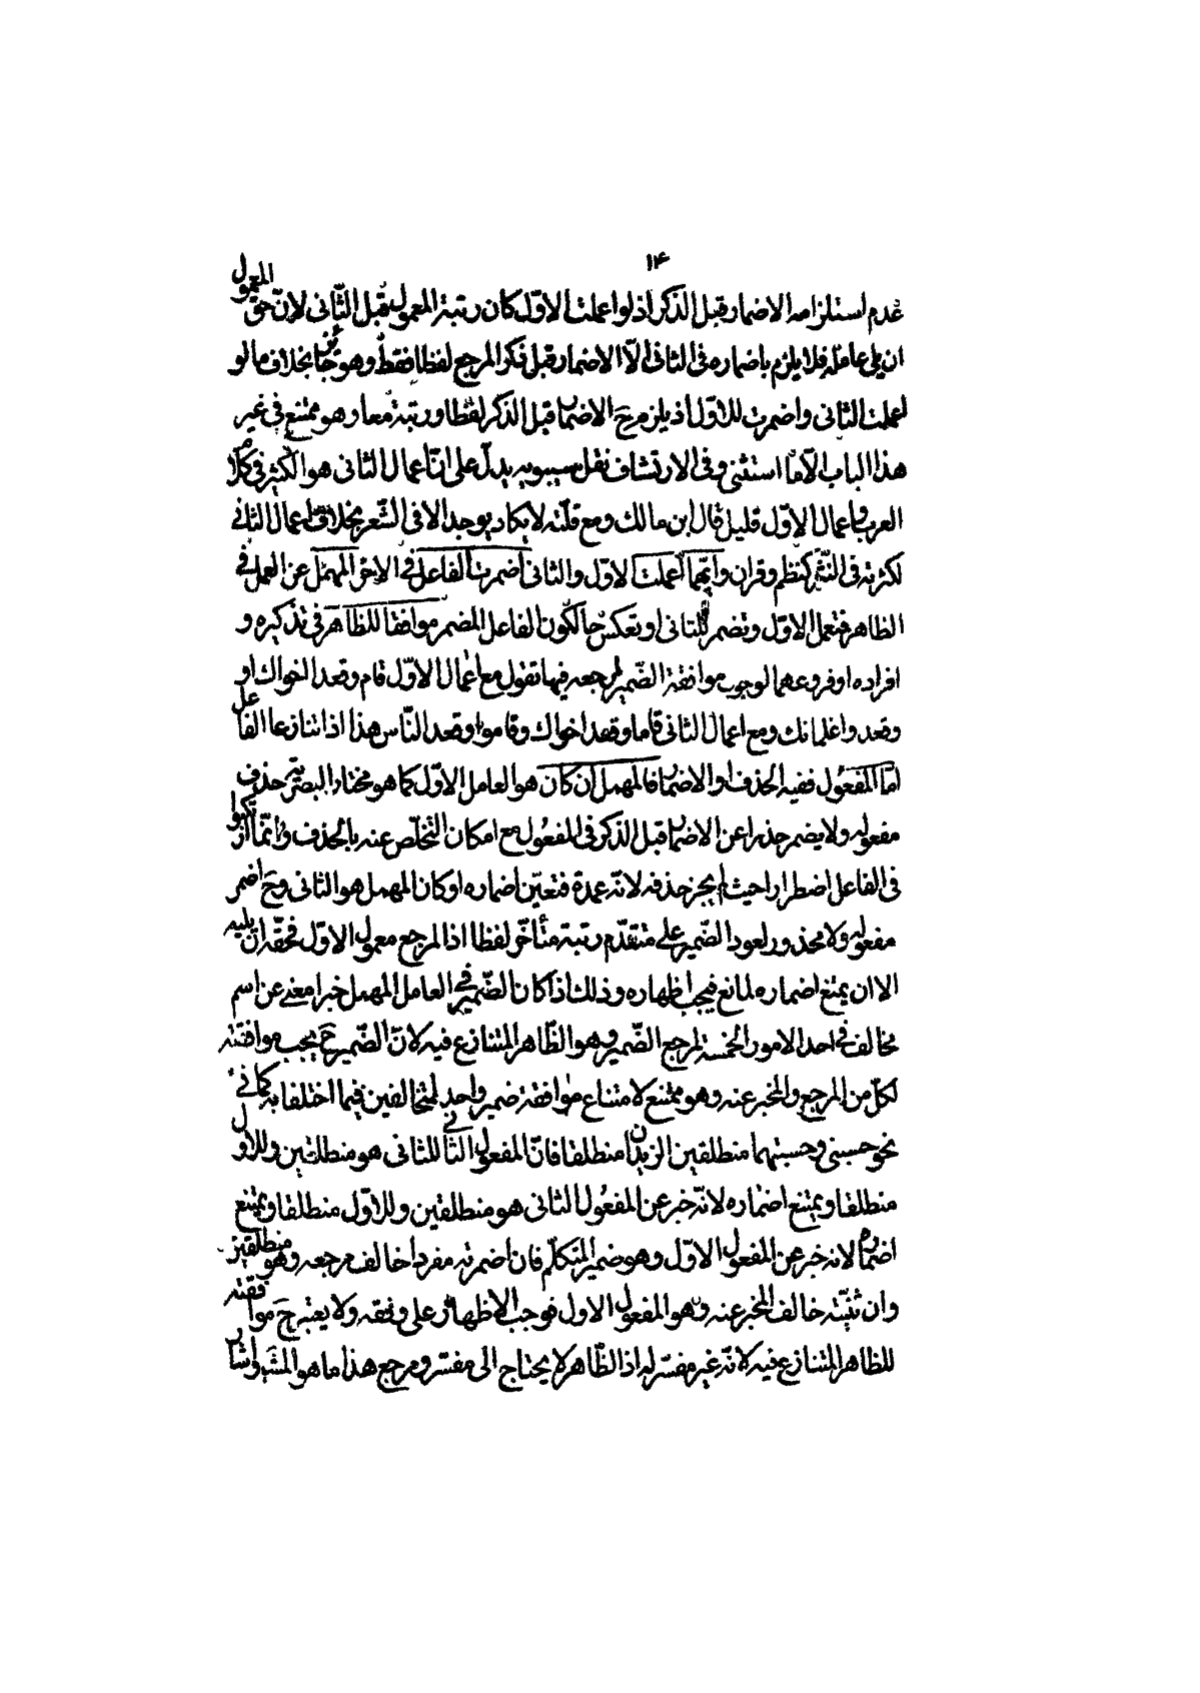 ١٤
عدم استلزامه الاضمار قبل الذكر اذ لو اعملت الاوّل كان رتبة المعمول قبل الثّانى لانّ حقّ المعمول
ان يلى عامله فلا يلزم باضماره فى الثانى الّا الاضمار قبل ذكر المرجع لفظا فقط وهو جائز بخلاف ما لو
اعملت الثانى واضمرت للاوّل اذ يلزم ح الاضمار قبل الذكر لفظا ورتبة معا وهو ممتنع فى غير
هذا الباب الّا ما استثنى وفى الارتشاف نقل سيبويه يدلّ على انّ اعمال الثانى هو الكثير فى كلام
العرب واعمال الاوّل قليل قال ابن مالك ومع قلّته لا يكاد يوجد الا فى الشّعر بخلاف اعمال الثانى
لكثرته فى النّثر كنظم وقران وايّهما اعملت الاوّل والثانى اضمرت الفاعل فى الاخر المهمل عن العمل فى
الظاهر فتعمل الاوّل وتضمر للثانى او تعكس حالكون الفاعل المضمر موافقا للظاهر فى تذكيره و
افراده او فروعهما لوجوب موافقة الضّمير لمرجعه فيها تقول مع اعمال الاوّل قام وقعدا اخواك او
وقعدوا غلمانك ومع اعمال الثانى قاما وقعد اخواك وقاموا وقعد النّاس هذا اذا تنازعا الفاعل
امّا المفعول ففيه الحذف او الاضمار فالمهمل ان كان هو العامل الاوّل كما هو مختار البصريّة حذف
مفعوله ولا يضمر حذرا عن الاضمار قبل الذكر فى المفعول مع امكان التّخلّص عنه بالحذف وانّما ارتكبوا
فى الفاعل اضطرارا حيث لم يجز حذفه لانّه عمدة فتعيّن اضماره او كان المهمل هو الثانى وح اضمر
مفعوله ولا محذور لعود الضّمير على متقدّم رتبة متأخّر لفظا اذ المرجع معمول الاوّل فحقّه ان يليه
الا ان يمنع اضماره لمانع فيجب اظهاره وذلك اذا كان الضّمير فى العامل المهمل خبرا معنى عن اسم
مخالف فى احد الامور الخمسة لمرجع الضّمير وهو الظّاهر المتنازع فيه لانّ الضّمير ح يجب موافقته
لكلّ من المرجع والمخبر عنه وهو ممتنع لامتناع موافقة ضمير واحد لمتخالفين فيما اختلفا به كما فى
نحو حسبنى وحسبتهما منطلقين الزيدان منطلقا فانّ المفعول الثانى للثانى هو منطلقين وللاوّل
منطلقا ويمتنع اضماره لانّه خبر عن المفعول الثانى هو منطلقين وللاوّل منطلقا ويمتنع
اضماره لانه خبر عن المفعول الاوّل وهو ضمير المتكلّم فان اضمرته مفردا خالف مرجعه وهو منطلقين
وان ثنّيته خالف المخبر عنه وهو المفعول الاول فوجب الاظهار على وفقه ولا يعتبر ح موافقته
للظاهر المتنازع فيه لانّه غير مفسّر له اذ الظّاهر لا يحتاج الى مفسّر ومرجع هذا ما هو المش واشار